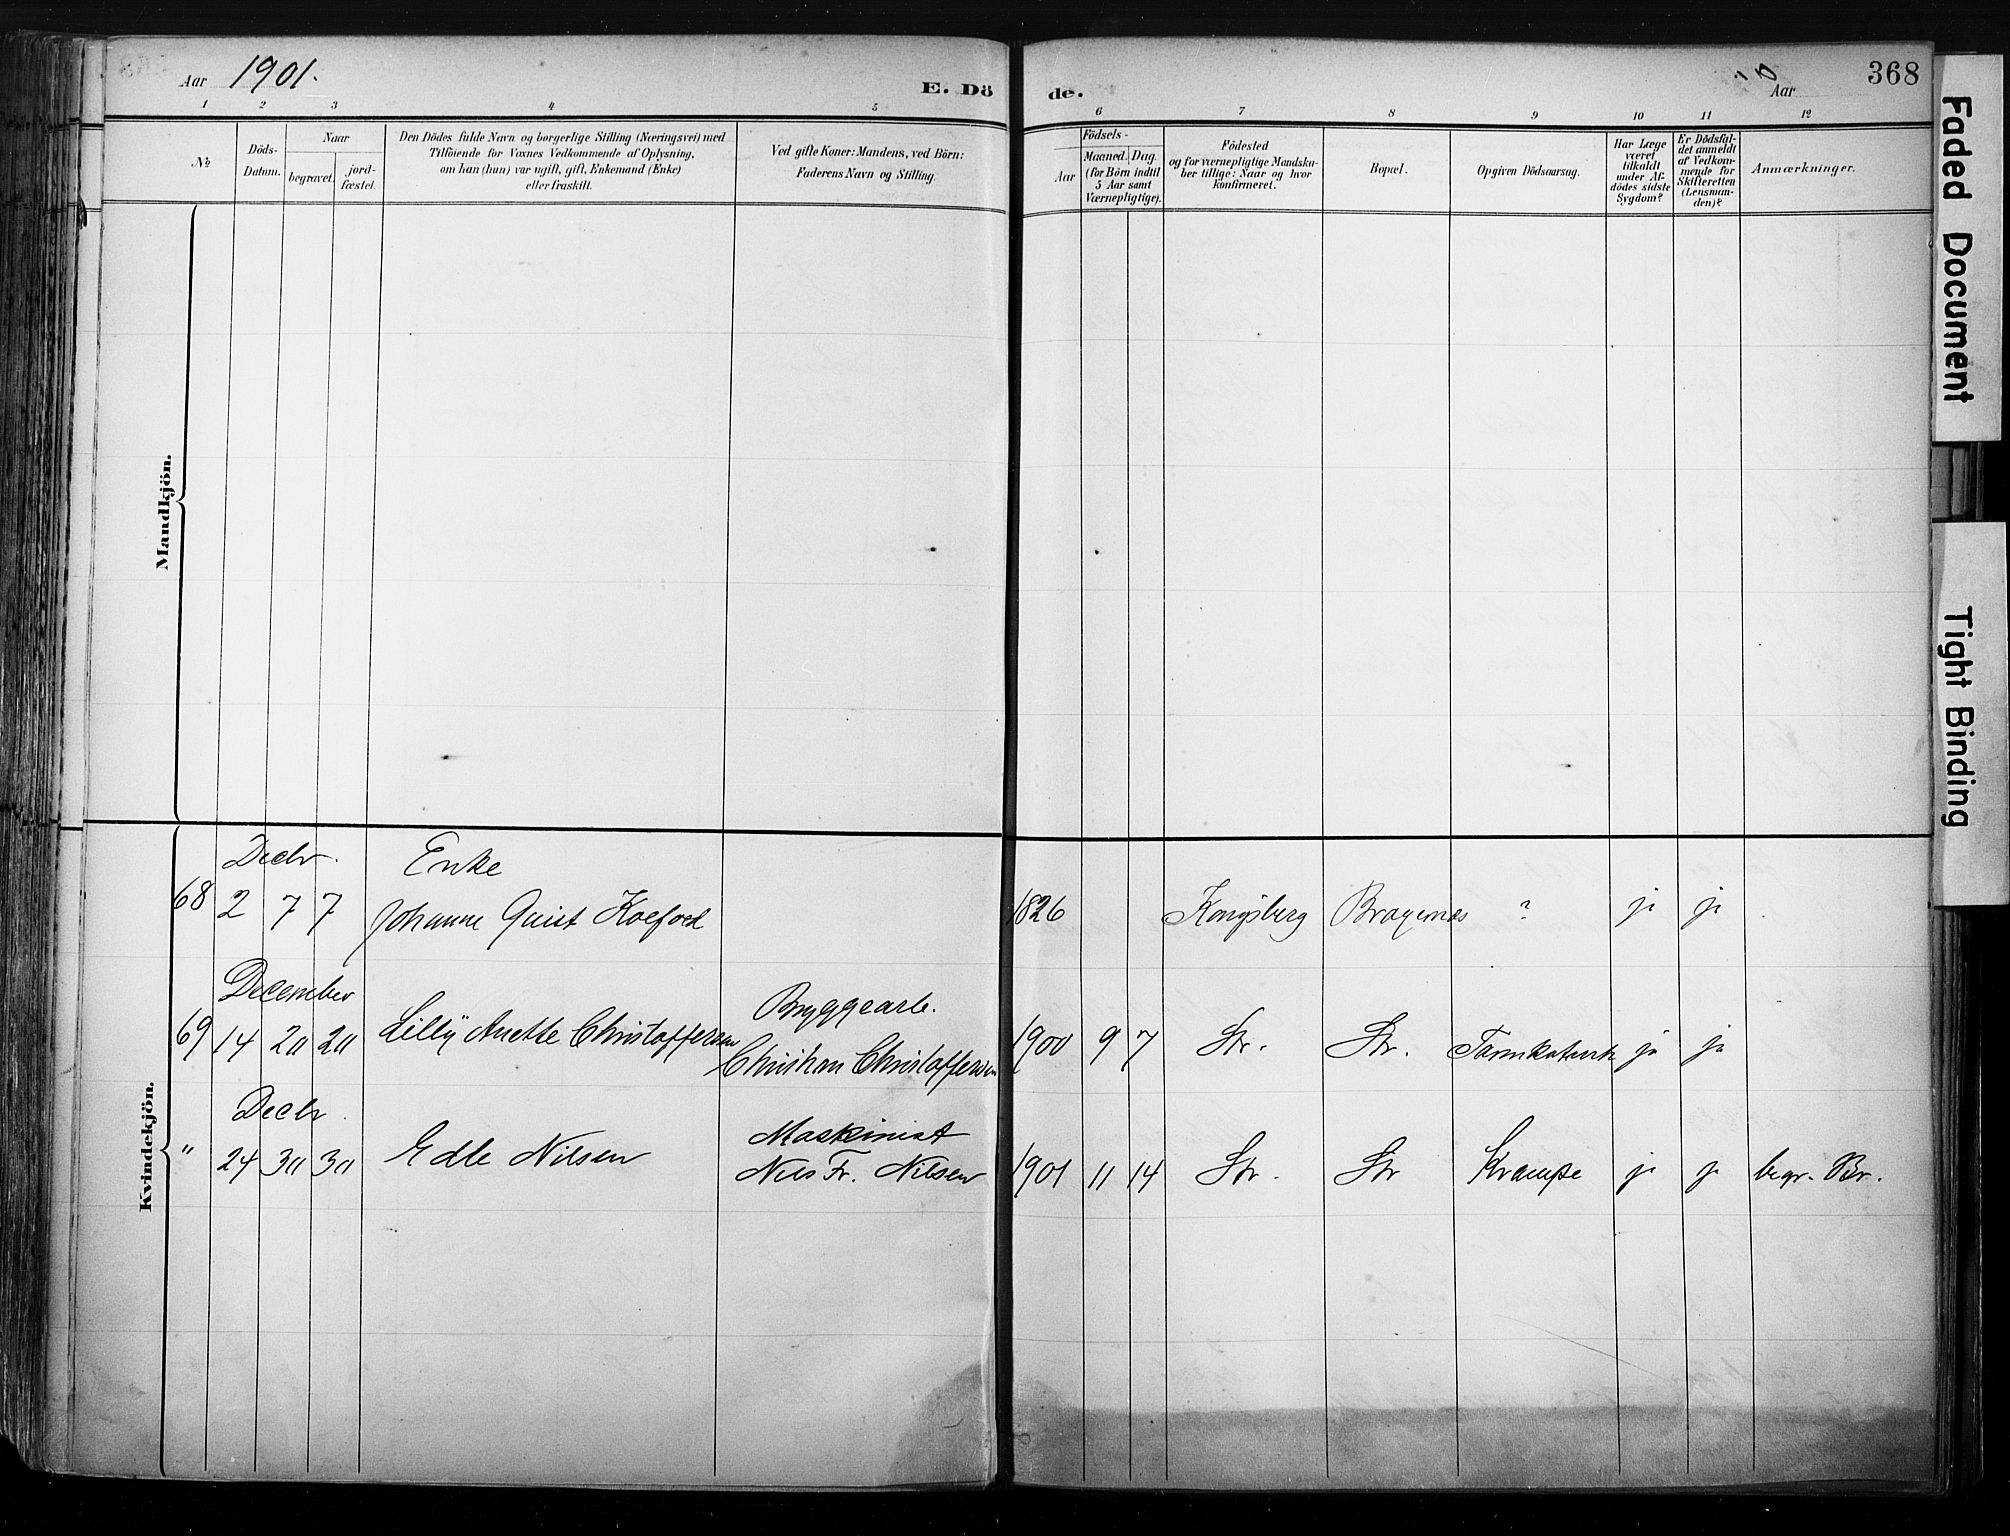 Aar 1901.
E. Dö
de.
Aar
368
1 2 3 4 5 6 7 8 9 10 11 12
No
Döds-
Datum.
Naar
begravet.
jord-
fæstet.
Den Dödes fulde Navn og borgerlige Stilling (Næringsvei) med
Tilföiende for Voxnes Vedkommende af Oplysning,
om han (hun) var ugift, gift, Enkemand (Enke)
eller fraskilt.
Ved gifte Koner: Mandens, ved Börn:
Faderens Navn og Stilling.
Födsels-
Aar
Maaned. Dag.
(for Börn indtil
5 Aar samt
Værnepligtige).
Födested
og for værnepligtige Mandsku-
ber tillige: Naar og hvor
konfirmeret.
Bopæl.
Opgiven Dödsaarsag.
Har Læge
været
tilkaldt
under Af-
dödes sidste
Sygdom?
Er Dödsfal-
det anmeldt
af Vedkom-
mende for
Skifteretten
(Lensman-
den)?
Anmærkninger.
Mandkjön.
Kvindekjön.
Decbr. Enke
68 2 7 7 Johanne Quist Koefoed 1826 Kongsberg Bragernæs ? ja ja
December Bryggearb.
69 14 20 20 Lilly Anette Christoffersen Christian Christoffersen 1900 9 7 Str. Str. Tarmkatarrh ja ja
Decbr. Maskinist
" 24 30 30 Edle Nilsen Nils Fr. Nilsen 1901 11 14 Str. Str Krampe ja ja begr. Br.
Faded Document
Tight Binding